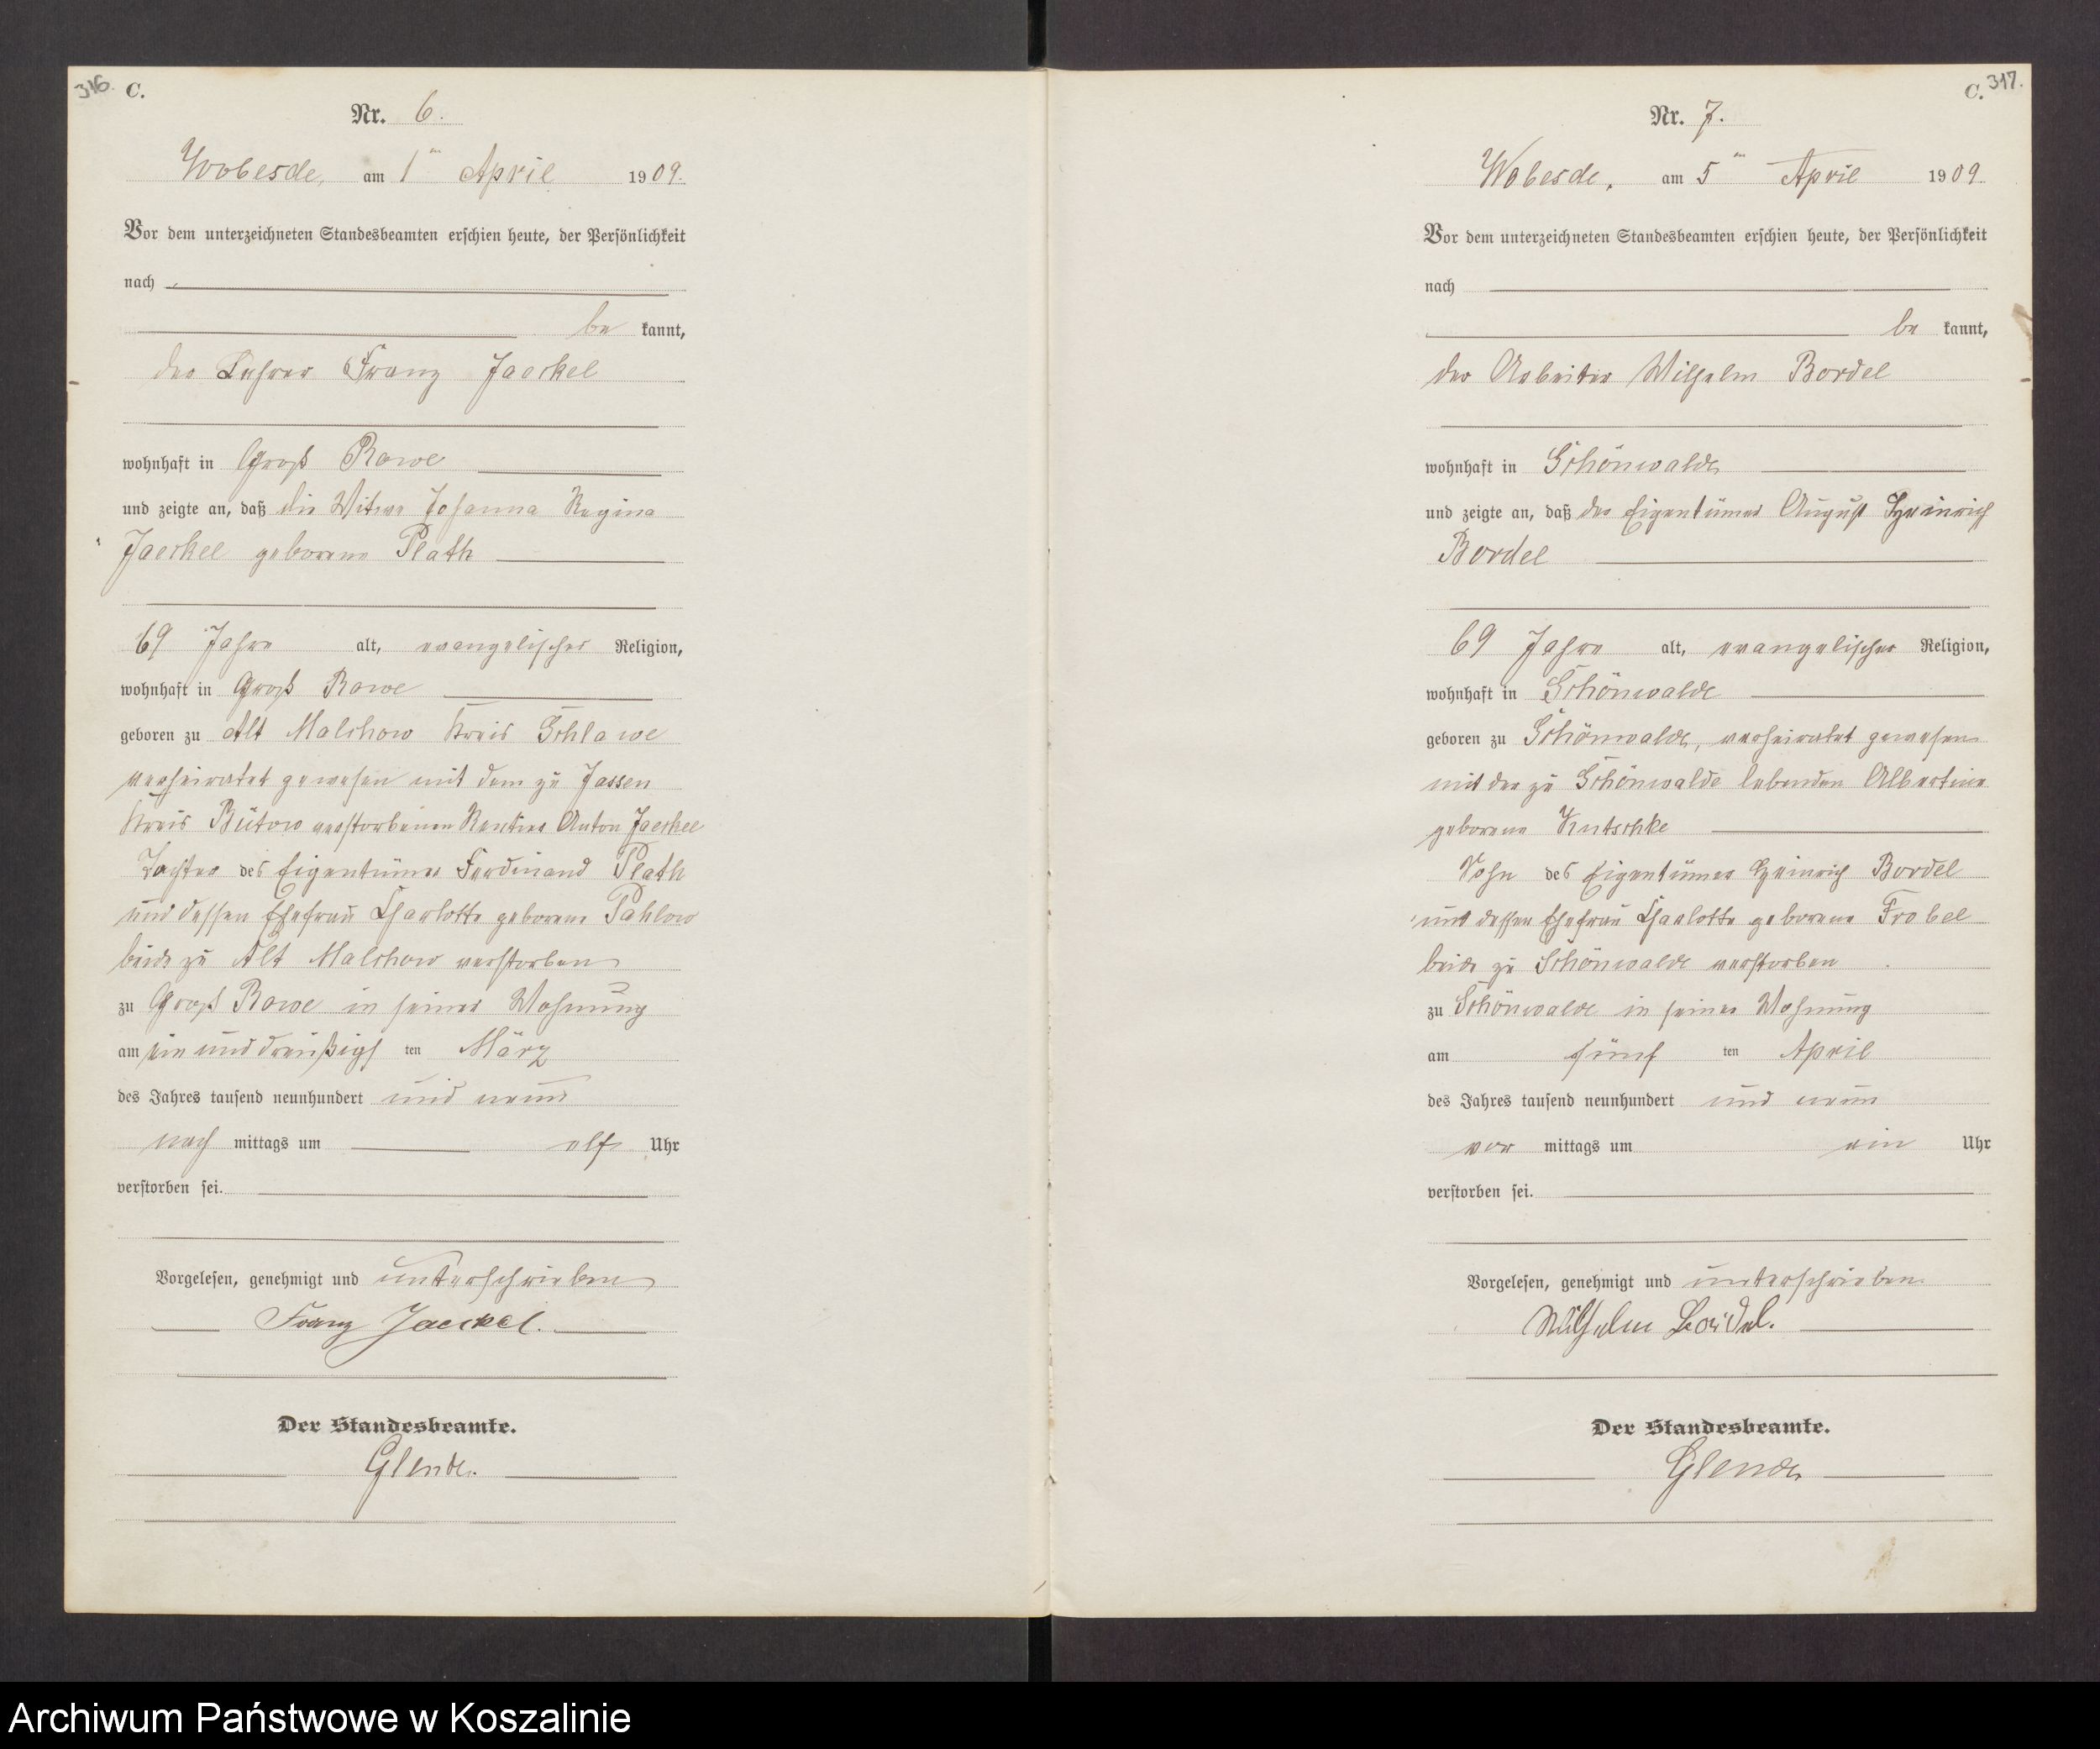 316. C.
Nr. 6.
Wobesde, am 1ten April 1909.
Vor dem unterzeichneten Standesbeamten erschien heute, der Persönlichkeit
nach
be kannt,
der Lehrer Franz Jaeckel
wohnhaft in Groß Rowe
und zeigte an, daß die Witwe Johanna Regina
Jaeckel geborene Plath
69 Jahre alt, evangelischer Religion,
wohnhaft in Groß Rowe
geboren zu Alt Malchow Kreis Schlawe
verheiratet gewesen mit dem zu Jassen
Kreis Bütow verstorbenen Rentier Anton Jaeckel
Tochter des Eigentümer Ferdinand Plath
und dessen Ehefrau Charlotte geborene Pahlow
beide zu Alt Malchow verstorben
zu Groß Rowe in seiner Wohnung
am ein und dreißigs ten März
des Jahres tausend neunhundert und neun
nach mittags um elf Uhr
verstorben sei.
Vorgelesen, genehmigt und unterschrieben
Franz Jaeckel.
Der Standesbeamte.
Glende.
C. 317.
Nr. 7.
Wobesde, am 5ten April 1909.
Vor dem unterzeichneten Standesbeamten erschien heute, der Persönlichkeit
nach
be kannt,
der Arbeiter Wilhelm Bordel
wohnhaft in Schönwalde
und zeigte an, daß der Eigentümer August Heinrich
Bordel
69 Jahre alt, evangelischer Religion,
wohnhaft in Schönwalde
geboren zu Schönwalde, verheiratet gewesen
mit der zu Schönwalde lebenden Albertine
geborene Kutschke
Sohn des Eigentümer Heinrich Bordel
und dessen Ehefrau Charlotte geborene Frobel
beide zu Schönwalde verstorben
zu Schönwalde in seiner Wohnung
am fünf ten April
des Jahres tausend neunhundert und neun
vor mittags um ein Uhr
verstorben sei.
Vorgelesen, genehmigt und unterschrieben
Wilhelm Bordel.
Der Standesbeamte.
Glende
Archiwum Państwowe w Koszalinie